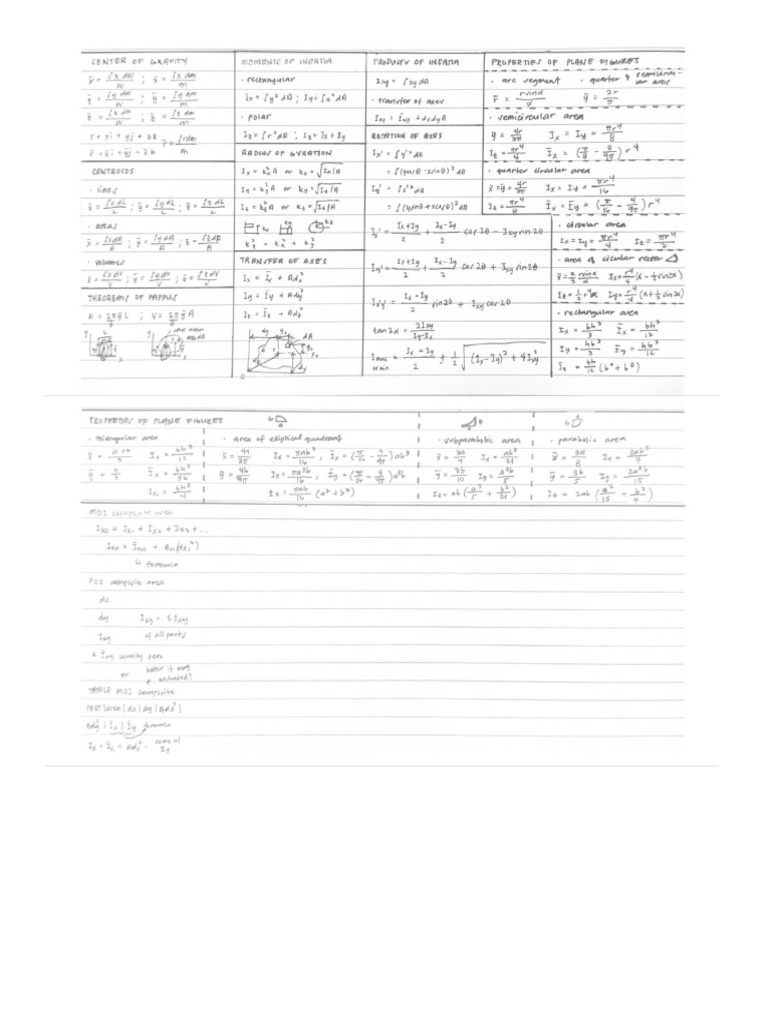 CENTER OF GRAVITY
x̄ = ∫x dW / W ; x̄ = ∫x dm / m
ȳ = ∫y dW / W ; ȳ = ∫y dm / m
z̄ = ∫z dW / W ; z̄ = ∫z dm / m
r = xi + yj + zk
r̄ = x̄i + ȳj + z̄k
r̄ = ∫r dm / m
CENTROIDS
• lines
x̄ = ∫x dL / L ; ȳ = ∫y dL / L ; z̄ = ∫z dL / L
• areas
x̄ = ∫x dA / A ; ȳ = ∫y dA / A ; z̄ = ∫z dA / A
• volumes
x̄ = ∫x dV / V ; ȳ = ∫y dV / V ; z̄ = ∫z dV / V
THEOREMS OF PAPPUS
A = 2πȳL ; V = 2πȳA
MOMENTS OF INERTIA
• rectangular
Ix = ∫y² dA ; Iy = ∫x² dA
• polar
Iz = ∫r² dA ; Iz = Ix + Iy
RADIUS OF GYRATION
Ix = kx² A or kx = √Ix/A
Iy = ky² A or ky = √Iy/A
Iz = kz² A or kz = √Iz/A
kz² = kx² + ky²
TRANSFER OF AXES
Ix = Īx + Adx²
Iy = Īy + Ady²
Iz = Īz + Adz²
PRODUCT OF INERTIA
Ixy = ∫xy dA
• transfer of axes
Ixy = Īxy + dxdyA
ROTATION OF AXES
Ix' = ∫y'² dA
= ∫(ycosθ - xsinθ)² dA
Iy' = ∫x'² dA
= ∫(ysinθ + xcosθ)² dA
Ix' = Ix+Iy / 2 + Ix-Iy / 2 cos 2θ - Ixy sin 2θ
Iy' = Ix+Iy / 2 - Ix-Iy / 2 cos 2θ + Ixy sin 2θ
Ix'y' = Ix - Iy / 2 sin 2θ + Ixy cos 2θ
tan 2α = 2Ixy / Iy-Ix
Imax min = Ix + Iy / 2 ± 1/2 √(Ix-Iy)² + 4Ixy²
PROPERTIES OF PLANE FIGURES
• arc segment • quarter & semicircular arcs
r̄ = r sinα / α ȳ = 2r / π
• semicircular area
ȳ = 4r / 3π Ix = Iy = πr⁴ / 8
Iz = πr⁴ / 4 Īx = (π/8 - 8/9π) r⁴
• quarter circular area
x̄ = ȳ = 4r / 3π Ix = Iy = πr⁴ / 16
Iz = πr⁴ / 8 Īx = Īy = (π/16 - 4/9π) r⁴
• circular area
Ix = Iy = πr⁴ / 4 Iz = πr⁴ / 2
• area of circular sector
x̄ = 2/3 r sinα / α Ix = r⁴/4 (α - ½ sin 2α)
Iz = ½ r⁴α Iy = r⁴/4 (α + ½ sin 2α)
• rectangular area
Ix = bh³ / 3 Īx = bh³ / 12
Iy = hb³ / 3 Īy = hb³ / 12
Īz = bh / 12 (b² + h²)
PROPERTIES OF PLANE FIGURES
• triangular area
x̄ = a+b / 3 Ix = bh³ / 12
ȳ = h / 3 Īx = bh³ / 36
Ix₁ = bh³ / 4
• area of elliptical quadrant
Ix = πab³ / 16 , Īx = (π/16 - 4/9π) ab³
ȳ = 4b / 3π Iy = πa³b / 16 , Īy = (π/16 - 4/9π) a³b
Iz = πab / 16 (a² + b²)
• subparabolic area
x̄ = 3a / 4 Ix = ab³ / 21
ȳ = 3b / 10 Iy = a³b / 5
Iz = ab (a²/5 + b²/21)
• parabolic area
x̄ = 3a / 8 Ix = 2ab³ / 7
ȳ = 3b / 5 Iy = 2a³b / 15
Iz = 2ab (a²/15 + b²/7)
MOI composite area
Ix₁ + Ix₂ + Ix₃ + ...
↳ formula
POI composite area
dx
dy Ixy = Σ Ixy
Ixy of all parts
Īxy usually zero
or
TABLE MOI composite
PART | area | dx | dy | Adx² |
Ady² | Īx | Īy formula
Ix = Īx + Adx² - same w/ Iy